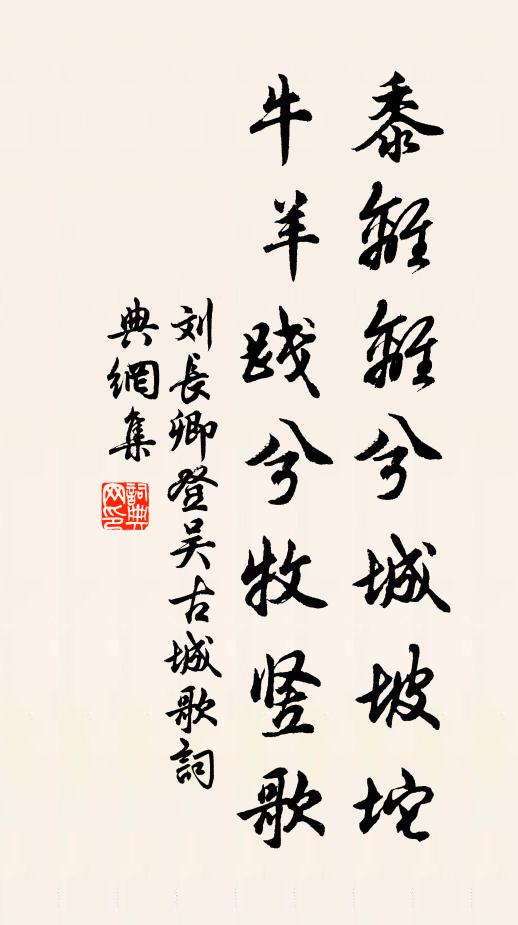 黍離離兮城坡坨
牛羊践兮牧竖歌
刘長卿登吴古城歌詞
典網集
詞典网印